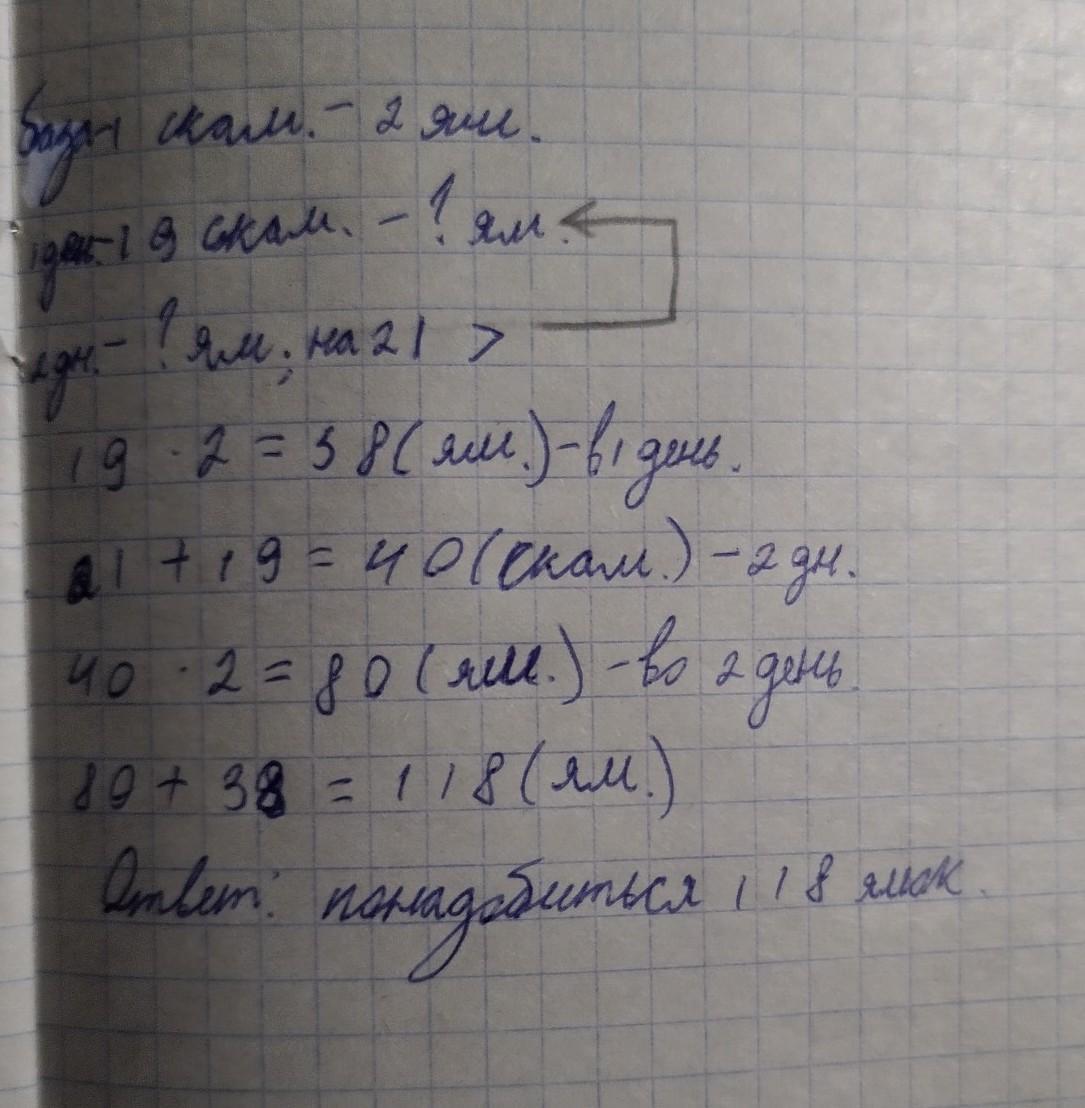 база-1 скам. - 2 ям.
1 ден. - 19 скам. - ? ям.
2 дн. - ? ям; на 21 >
19 · 2 = 38 (ям.) - в 1 день.
21 + 19 = 40 (скам.) - 2 дн.
40 · 2 = 80 (ям.) - во 2 день.
80 + 38 = 118 (ям.)
Ответ: понадобиться 118 ямок.